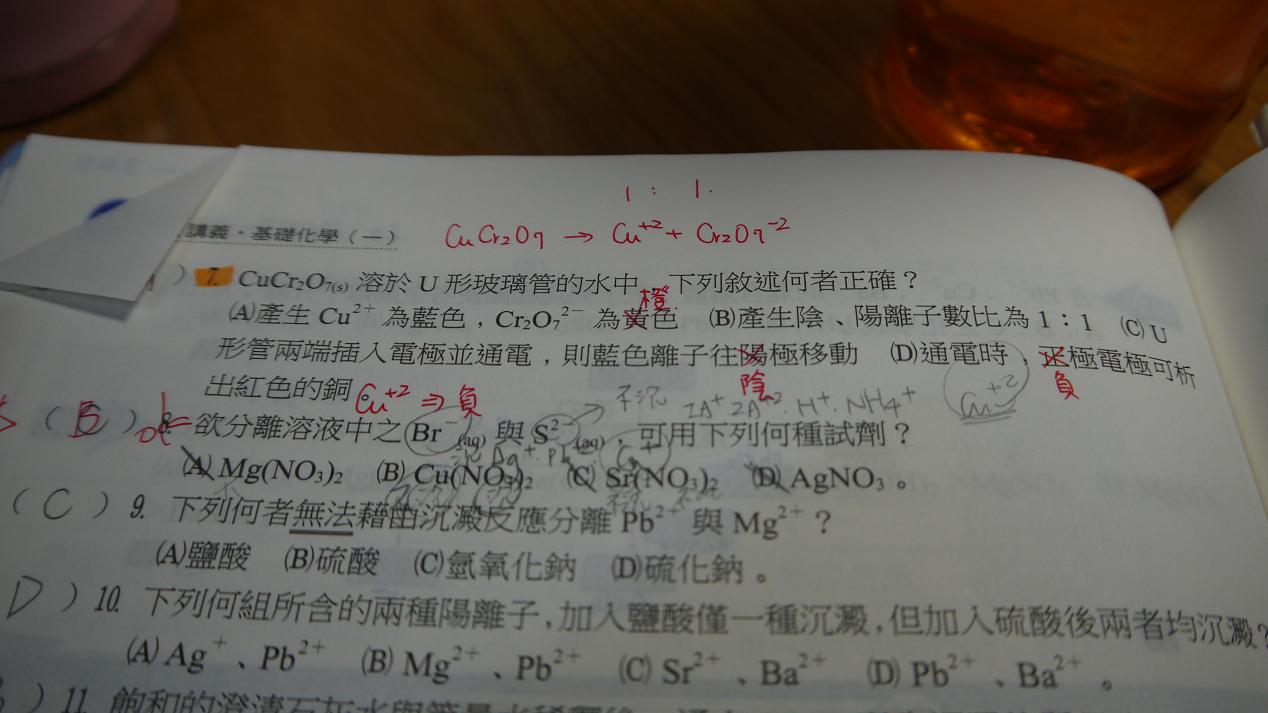 1 : 1.
講義・基礎化學（一）
CuCr₂O₇ → Cu⁺² + Cr₂O₇⁻²
) 7. CuCr₂O₇₍s₎ 溶於 U 形玻璃管的水中，下列敘述何者正確？
橙
(A)產生 Cu²⁺ 為藍色，Cr₂O₇²⁻ 為黃色 (B)產生陰、陽離子數比為 1：1 (C) U
形管兩端插入電極並通電，則藍色離子往陽極移動 (D)通電時，正極電極可析
陰 負
出紅色的銅。
Cu⁺² ⇒ 負
Cu⁺²
不沉 IA⁺ 2A⁺² · H⁺ · NH₄⁺
( B ) 8. 欲分離溶液中之 Br⁻₍aq₎ 與 S²⁻₍aq₎，可用下列何種試劑？
(A) Mg(NO₃)₂ (B) Cu(NO₃)₂ (C) Sr(NO₃)₂ (D) AgNO₃。
( C ) 9. 下列何者無法藉由沉澱反應分離 Pb²⁺ 與 Mg²⁺？
(A)鹽酸 (B)硫酸 (C)氫氧化鈉 (D)硫化鈉。
D ) 10. 下列何組所含的兩種陽離子，加入鹽酸僅一種沉澱，但加入硫酸後兩者均沉澱？
(A) Ag⁺、Pb²⁺ (B) Mg²⁺、Pb²⁺ (C) Sr²⁺、Ba²⁺ (D) Pb²⁺、Ba²⁺。
) 11. 飽和的澄清石灰水